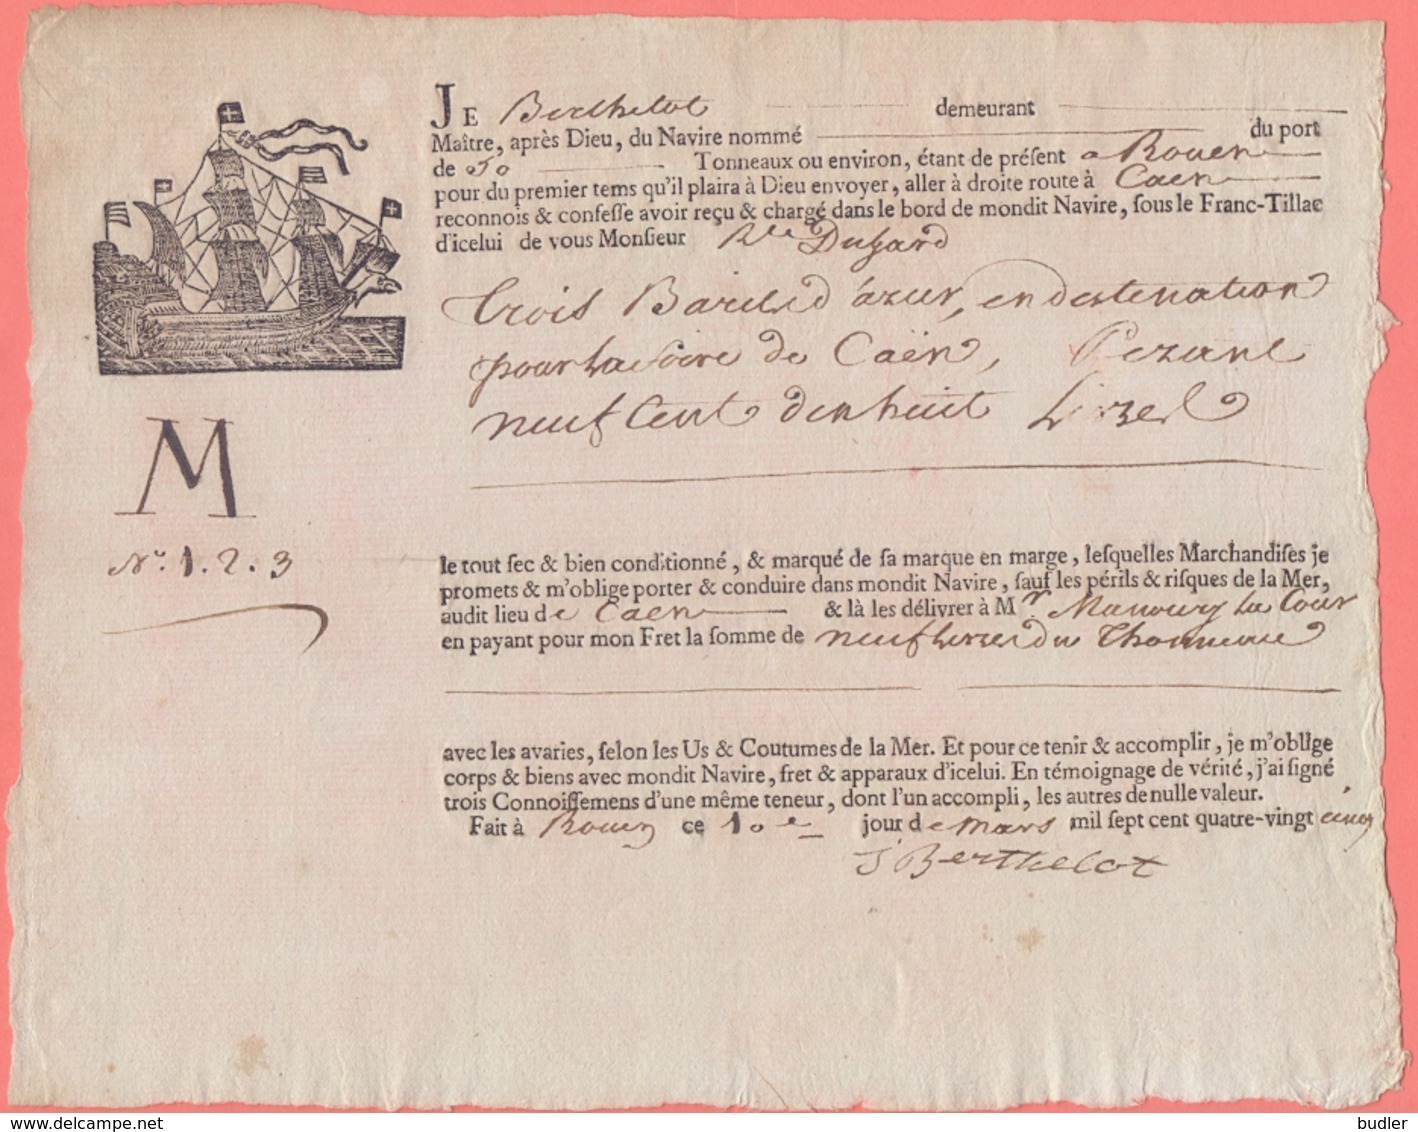 JE Berthelot demeurant
Maître, après Dieu, du Navire nommé du port
de 50 Tonneaux ou environ, étant de préſent a Rouen
pour du premier tems qu'il plaira à Dieu envoyer, aller à droite route à Caen
reconnois & confeſſe avoir reçu & chargé dans le bord de mondit Navire, ſous le Franc-Tillac
d'icelui de vous Monſieur Dugard
trois Barils d'azur, en destination
pour la foire de Caën, Pezant
neuf Cent dix huit Livres
M
N.o 1. 2. 3
le tout ſec & bien conditionné, & marqué de ſa marque en marge, leſquelles Marchandiſes je
promets & m'oblige porter & conduire dans mondit Navire, ſauf les périls & riſques de la Mer,
audit lieu de Caen & là les délivrer à Mr Manoury la Cour
en payant pour mon Fret la ſomme de neuf Livres du Thonneau
avec les avaries, ſelon les Us & Coutumes de la Mer. Et pour ce tenir & accomplir, je m'oblige
corps & biens avec mondit Navire, fret & apparaux d'icelui. En témoignage de vérité, j'ai ſigné
trois Connoiſſemens d'une même teneur, dont l'un accompli, les autres de nulle valeur.
Fait à Rouen ce 10e jour de Mars mil ſept cent quatre-vingt cinq
J Berthelot
budler